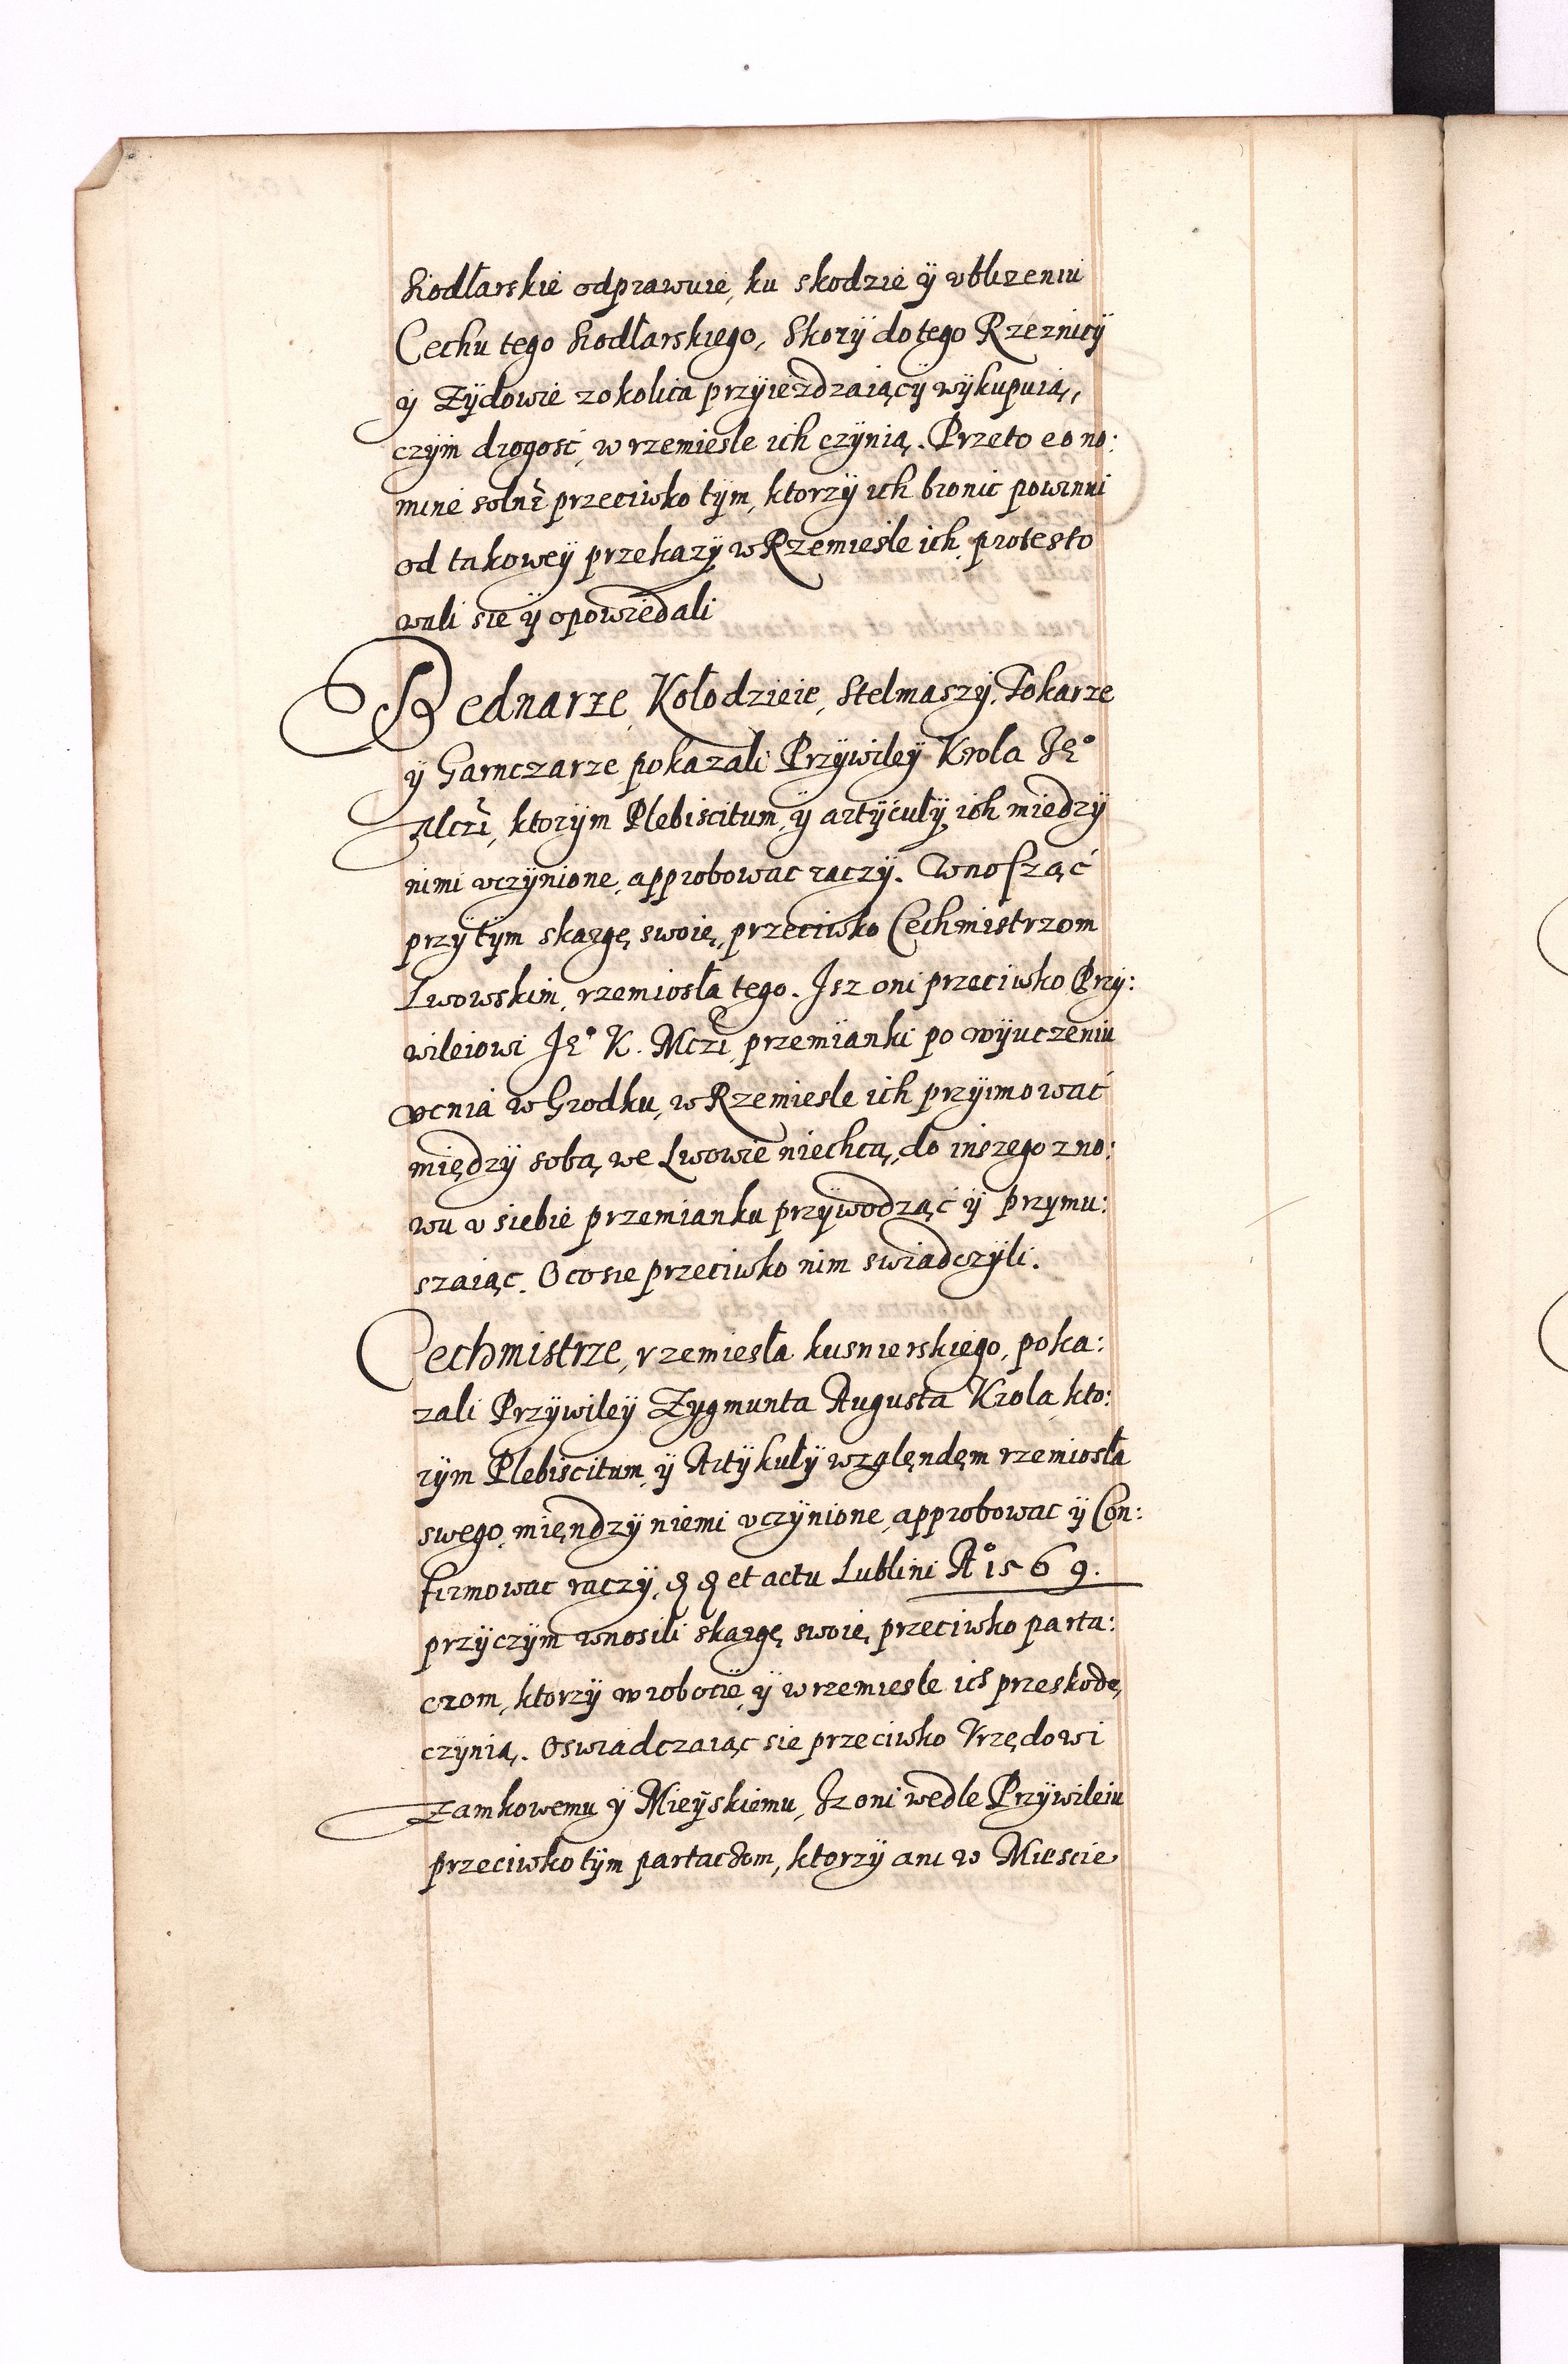 Siodłarskie odprawuie, ku skodzie ÿ vbliżeniu
Cechu tego Siodłarskiego, Skorÿ do tego Rzeznicÿ
ÿ Zÿdowie z okolica przÿieżdzaiącÿ wÿkupuią,
czÿm drogość, w rzemiesle ich czÿnią. Przeto eo no:
mine solnr przeciwko tÿm, ktorzÿ ich bronic powinni
od takoweÿ przekazÿ w Rzemieśle ich, protesto
wali sie ÿ opowiedali
Bednarze, Kołodzieie, Stelmaszÿ, Tokarze
ÿ Garnczarze pokazali Przÿwileÿ Krola Je°
Mczi, ktorÿm Plebiscitum, ÿ artÿcułÿ ich miedzÿ
nimi vczÿnione, approbowac raczÿ. Wnosząć
przÿ tÿm skargę swoię, przeciwko Cechmistrzom
Lwowskim, rzemiosła tego. Jsz oni przeciwko Przÿ:
wileiowi Je° K. Mczi, przemianki po wÿuczeniu
vcnia w Grodku, w Rzemiesle ich przÿimować
międzÿ sobą we Lwowie niechcą, do inszego zno:
wu v siebie przemianku przÿwodząć ÿ przymu:
szaiąc. O co sie przeciwko nim swiadczÿli.
Cechmistrze, rzemiesła kusnierskiego, poka:
zali Przÿwileÿ Zygmunta Augusta Krola, kto:
rÿm Plebiscitum, ÿ Artÿkułÿ względęm rzemiosła
swego, mięndzÿ niemi vczÿnione, approbowac ÿ Con:
firmowac raczÿ, et actu Lublini A° 1569.
przÿczÿm wnosili skargę swoię, przeciwko parta:
czom, ktorzÿ w robocie, ÿ w rzemiesle ich preskodę
czÿnią. Oswiadczaiąc sie przeciwko Vrzędowi
Zamkowemu ÿ Mieÿskiemu, Iz oni wedle Przÿwileiu
przeciwko tÿm partaczom, ktorzÿ ani w Miescie